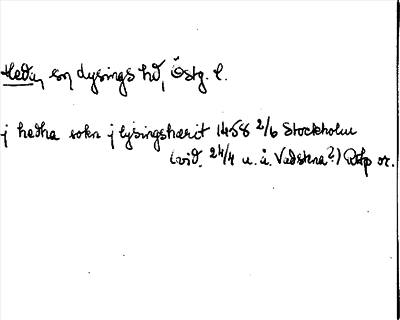 Heda, sn, Lysings hd, Östg. l.
j hædha sokn j lysingshærit 1458 2/6 Stockholm
(vid. 24/4 u. å. Vadstena?) Rep or.